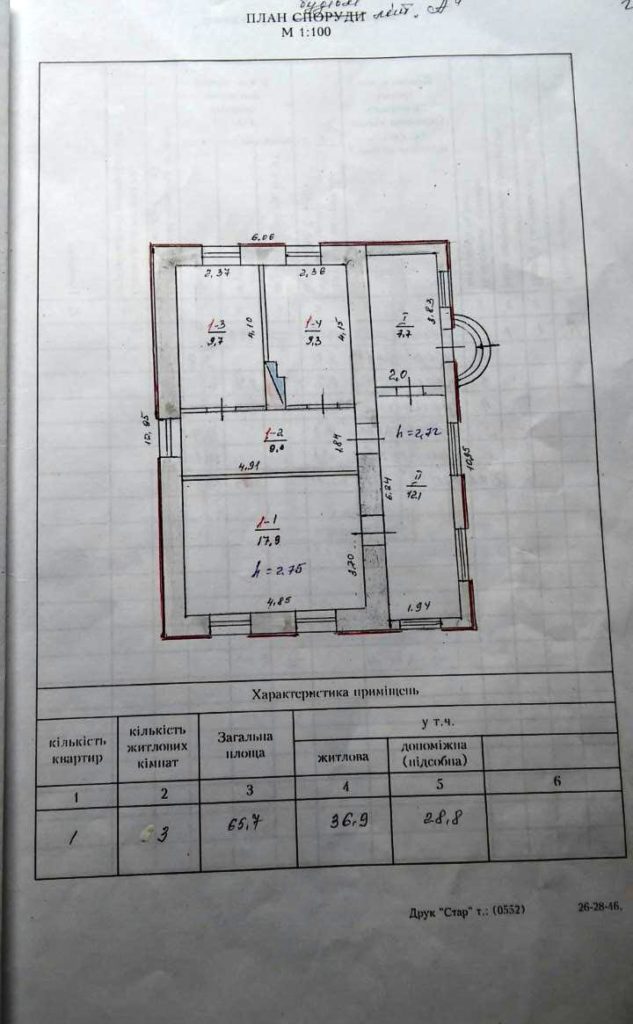 ПЛАН СПОРУДИ літ. "А"
М 1:100
6,06
2,37
2,36
1-3
9,7
4,10
1-4
9,3
4,15
I
7,7
3,83
2,0
10,95
1-2
4,91
1,84
h=2,72
6,24
II
12,1
10,95
1-1
17,9
h=2,75
3,70
4,85
1,94
Характеристика приміщень
кількість квартир
кількість житлових кімнат
Загальна площа
у т.ч.
житлова
допоміжна (підсобна)
1 2 3 4 5 6
1 3 65,7 36,9 28,8
Друк "Стар" т.: (0552) 26-28-46.